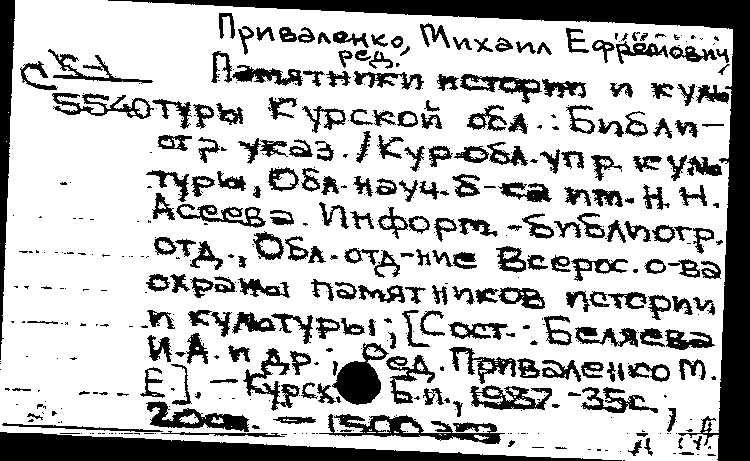 Приваленко, Михаил Ефремович,
ред.
К-1
С Памятники истории и куль-
5540 туры Курской обл.: Библи-
огр. указ. / Кур. обл. упр. куль-
туры, Обл. науч. б-ка им. Н. Н.
Асеева. Информ.-библиогр.
отд., Обл. отд-ние Всерос. о-ва
охраны памятников истории
и культуры; [Сост.: Беляева
И. А. и др.; Ред. Приваленко М.
Е.]. – Курск: Б.и., 1987. - 35с.;
20см. – 1500 экз.